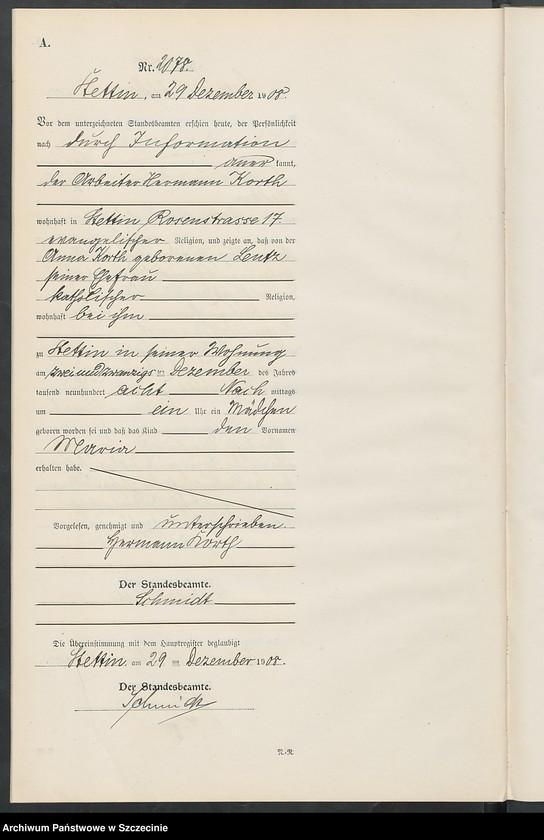 A.
Nr. 2078.
Stettin, am 29 Dezember 1908.
Vor dem unterzeichneten Standesbeamten erschien heute, der Persönlichkeit
nach durch Information
aner kannt,
der Arbeiter Hermann Korth
wohnhaft in Stettin Rosenstrasse 17.
evangelischer Religion, und zeigte an, daß von der
Anna Korth geborenen Lentz
seiner Ehefrau
katholischer Religion,
wohnhaft bei ihm
zu Stettin in seiner Wohnung
am zweiundzwanzigs ten Dezember des Jahres
tausend neunhundert acht Nach mittags
um ein Uhr ein Mädchen
geboren worden sei und daß das Kind den Vornamen
Maria
erhalten habe.
Vorgelesen, genehmigt und unterschrieben.
Hermann Korth
Der Standesbeamte.
Schmidt
Die Übereinstimmung mit dem Hauptregister beglaubigt
Stettin am 29 ten Dezember 1908.
Der Standesbeamte.
Schmidt
N.-R.
Archiwum Państwowe w Szczecinie